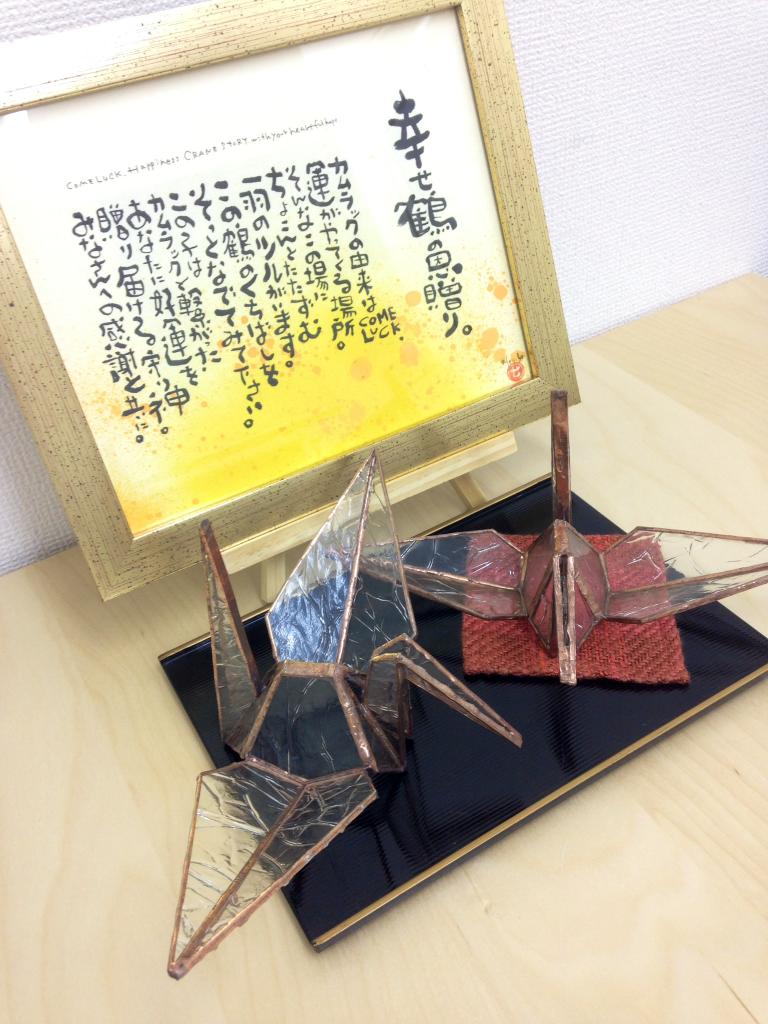 幸せ鶴の恩贈り。
COME LUCK. Happiness CRANE STORY with your heartful hope
カムラックの由来は COME LUCK.
運がやってくる場所。
そんなこの場に
ちょこんとたたずむ
一羽のツルがいます。
この鶴のくちばしを
そっとなでてみて下さい。
この子は繋がった
カムラックと好運を
あなたに
贈り届ける守り神
みなさんへの感謝と共に。